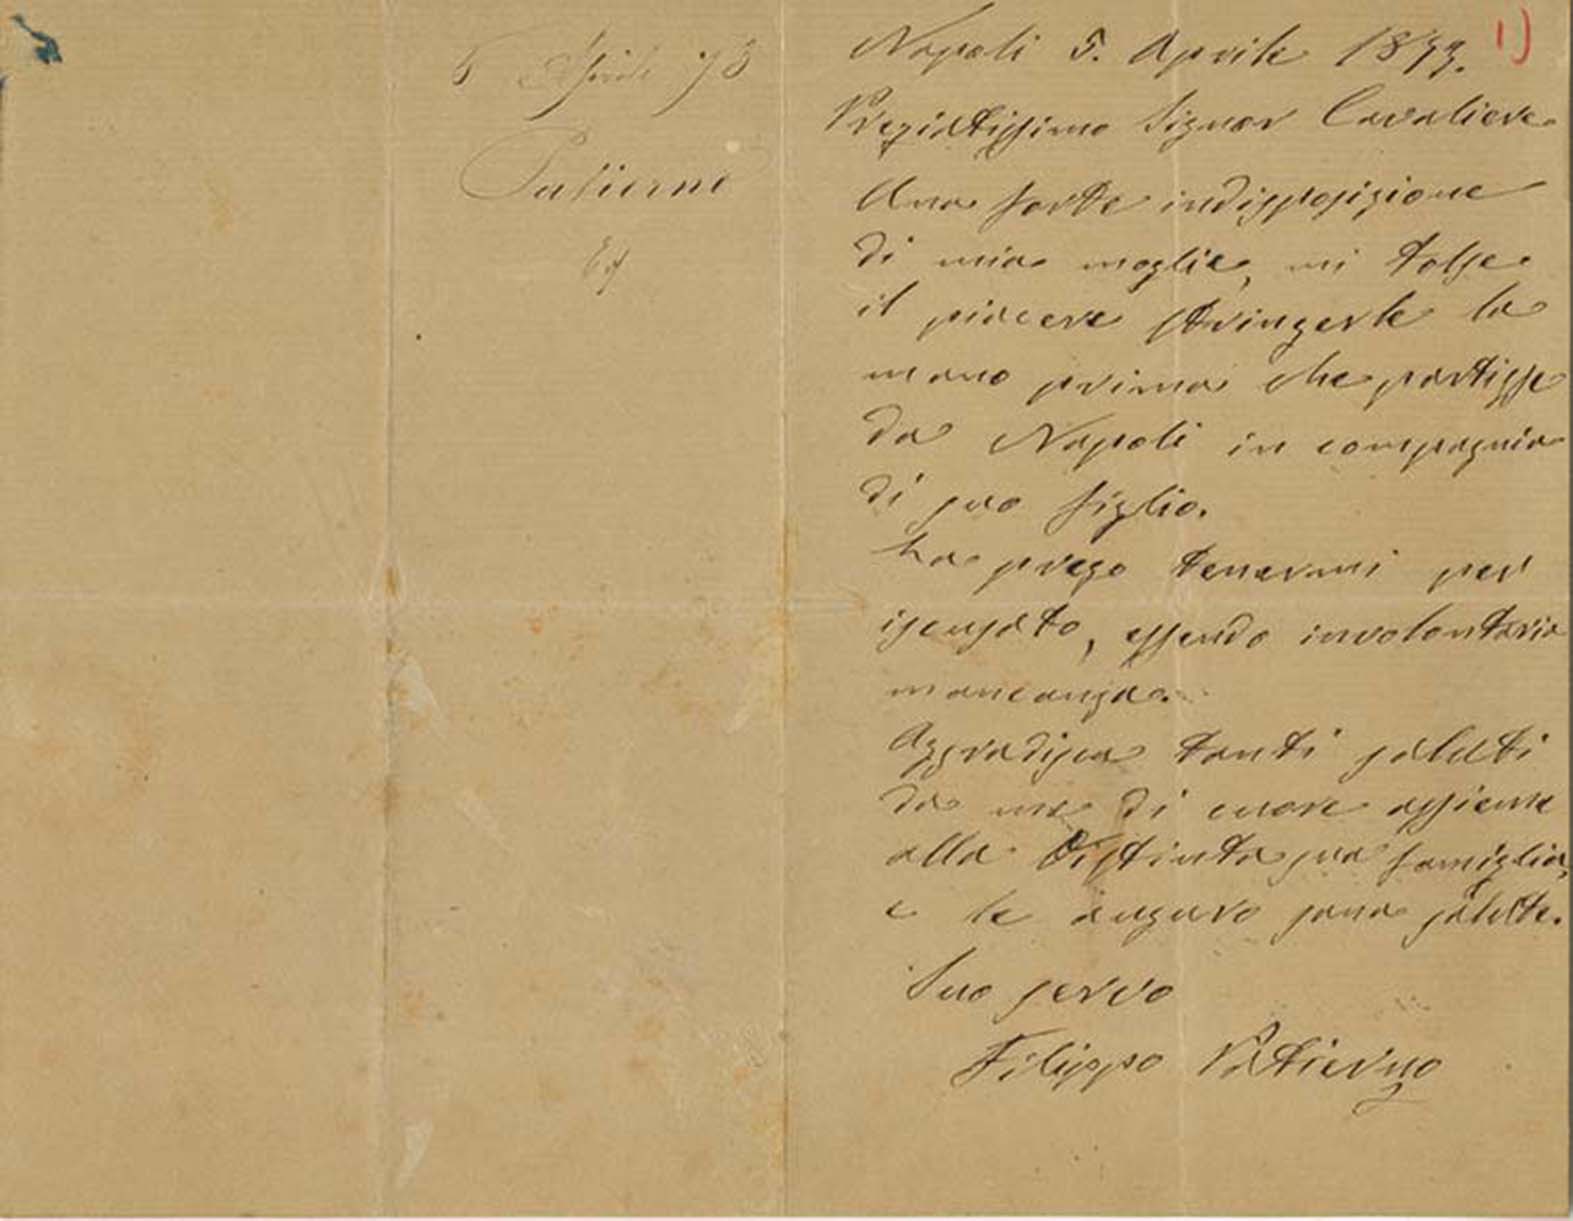 5 Aprile 73
Patierno
Napoli 5. Aprile 1873.
1)
Pregiatissimo Signor Cavaliere
Una forte indisposizione
di mia moglie, mi tolse
il piacere stringerle la
mano prima che partisse
da Napoli in compagnia
di suo figlio.
La prego tenermi per
iscusato, essendo involontaria
mancanza.
Aggradisca tanti saluti
da me di cuore assieme
alla distinta sua famiglia,
e le auguro sana salute.
Suo servo
Filippo Patierno